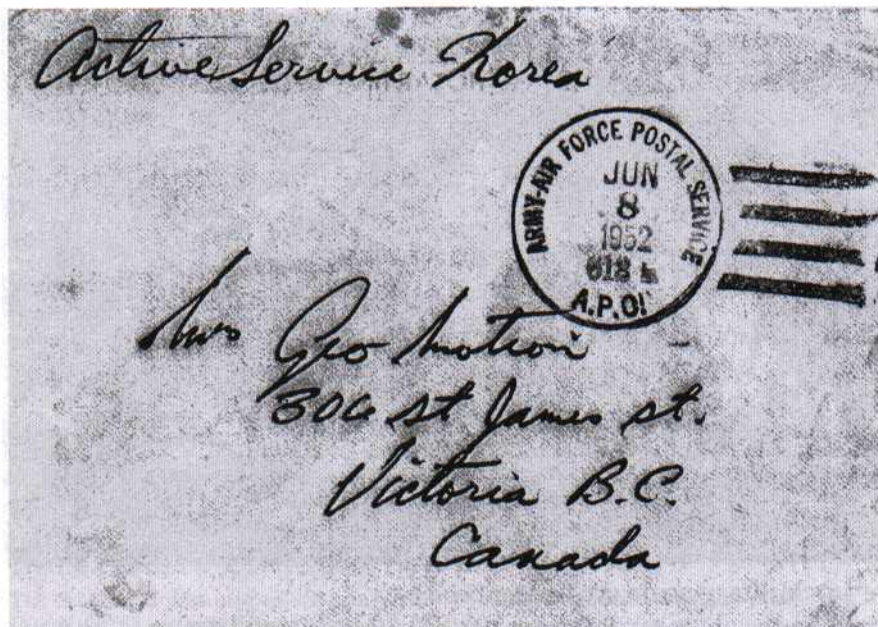 Active Service Korea
ARMY-AIR FORCE POSTAL SERVICE
JUN
8
1952
A.P.O.
Mrs Geo Motion
306 St James St.
Victoria B.C.
Canada